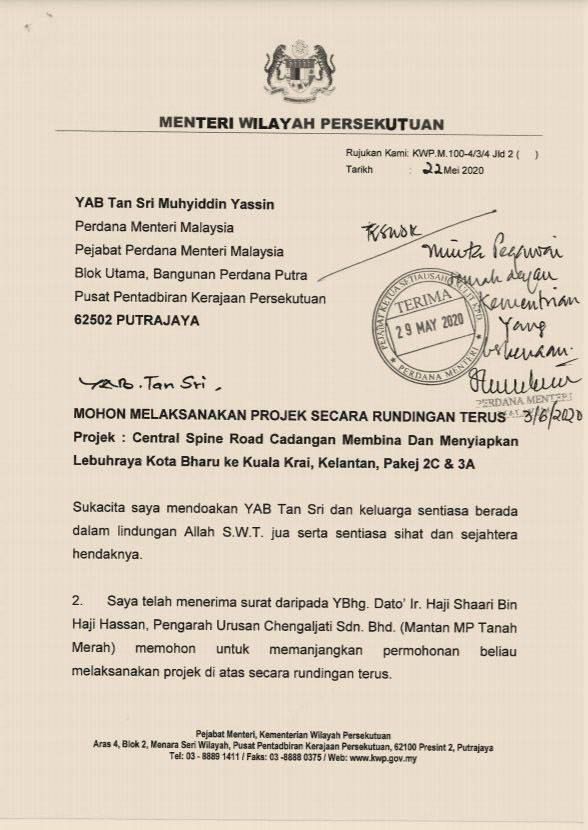 MENTERI WILAYAH PERSEKUTUAN
Rujukan Kami: KWP.M.100-4/3/4 Jld 2 ( )
Tarikh : 22 Mei 2020
YAB Tan Sri Muhyiddin Yassin
Perdana Menteri Malaysia
Pejabat Perdana Menteri Malaysia
Blok Utama, Bangunan Perdana Putra
Pusat Pentadbiran Kerajaan Persekutuan
62502 PUTRAJAYA
Minta Pegawai
dengan
Kementrian
Yang
berkenaan.
PEJABAT KETUA SETIAUSAHA SULIT YAB
TERIMA
29 MAY 2020
PERDANA MENTERI
PERDANA MENTERI
3/6/2020
YAB. Tan Sri,
MOHON MELAKSANAKAN PROJEK SECARA RUNDINGAN TERUS
Projek : Central Spine Road Cadangan Membina Dan Menyiapkan
Lebuhraya Kota Bharu ke Kuala Krai, Kelantan, Pakej 2C & 3A
Sukacita saya mendoakan YAB Tan Sri dan keluarga sentiasa berada
dalam lindungan Allah S.W.T. jua serta sentiasa sihat dan sejahtera
hendaknya.
2. Saya telah menerima surat daripada YBhg. Dato' Ir. Haji Shaari Bin
Haji Hassan, Pengarah Urusan Chengaljati Sdn. Bhd. (Mantan MP Tanah
Merah) memohon untuk memanjangkan permohonan beliau
melaksanakan projek di atas secara rundingan terus.
Pejabat Menteri, Kementerian Wilayah Persekutuan
Aras 4, Blok 2, Menara Seri Wilayah, Pusat Pentadbiran Kerajaan Persekutuan, 62100 Presint 2, Putrajaya
Tel: 03 - 8889 1411 / Faks: 03 -8888 0375 / Web: www.kwp.gov.my